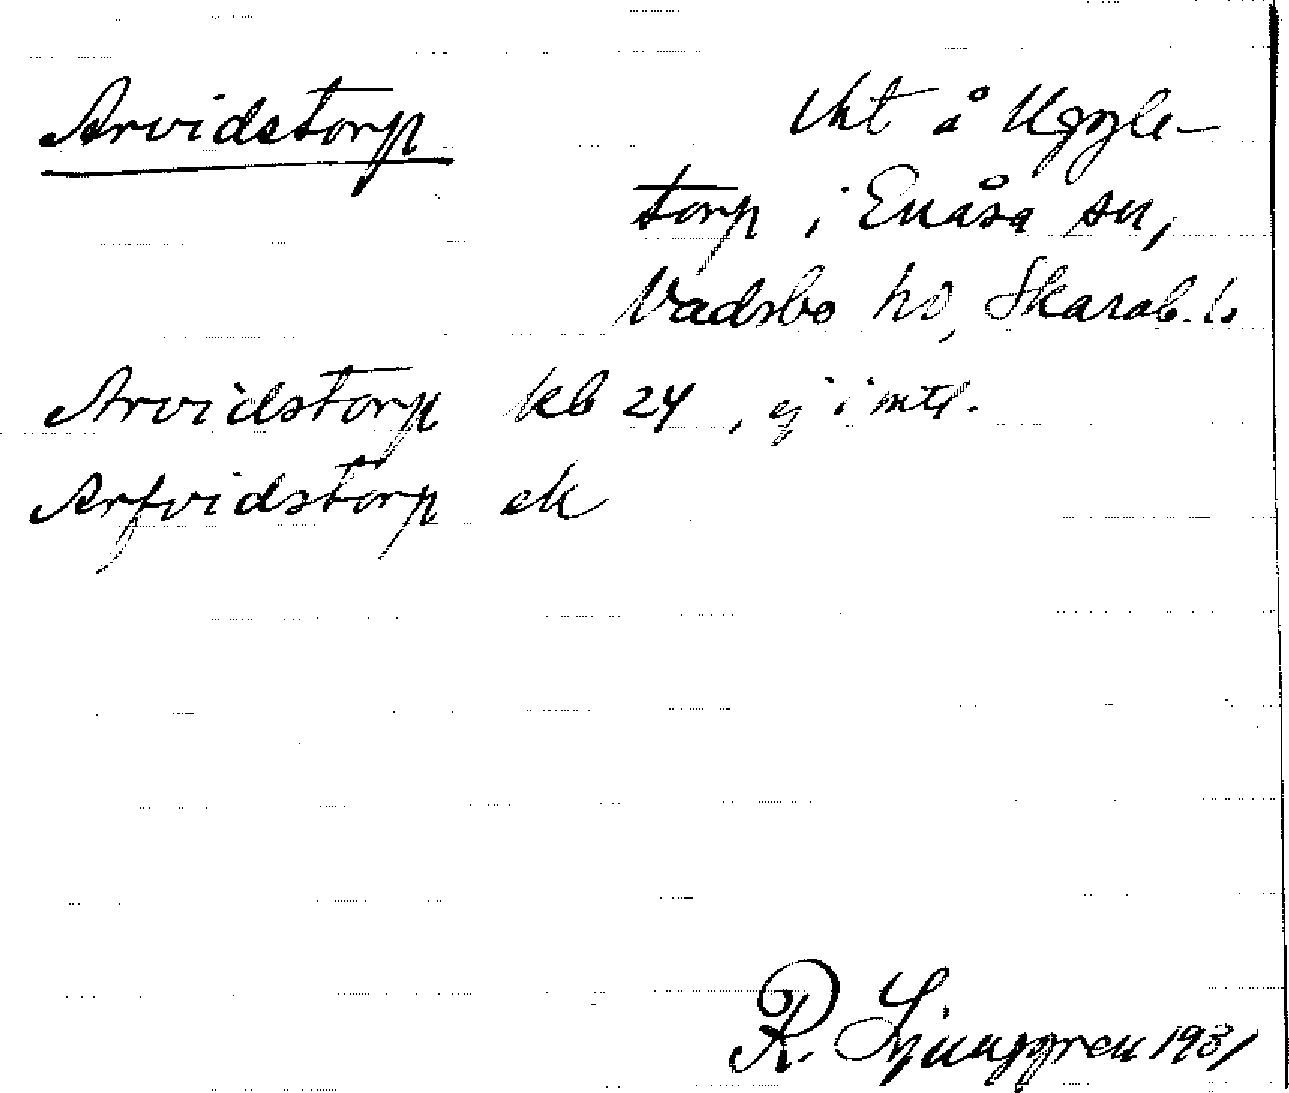 Arvidstorp Uht å Uggle-
torp i Enåsa sn,
Vadsbo hd, Skarab. l.
Arvidstorp kb 24, ej i mtl.
Arfvidstorp ek
R. Ljunggren 1931